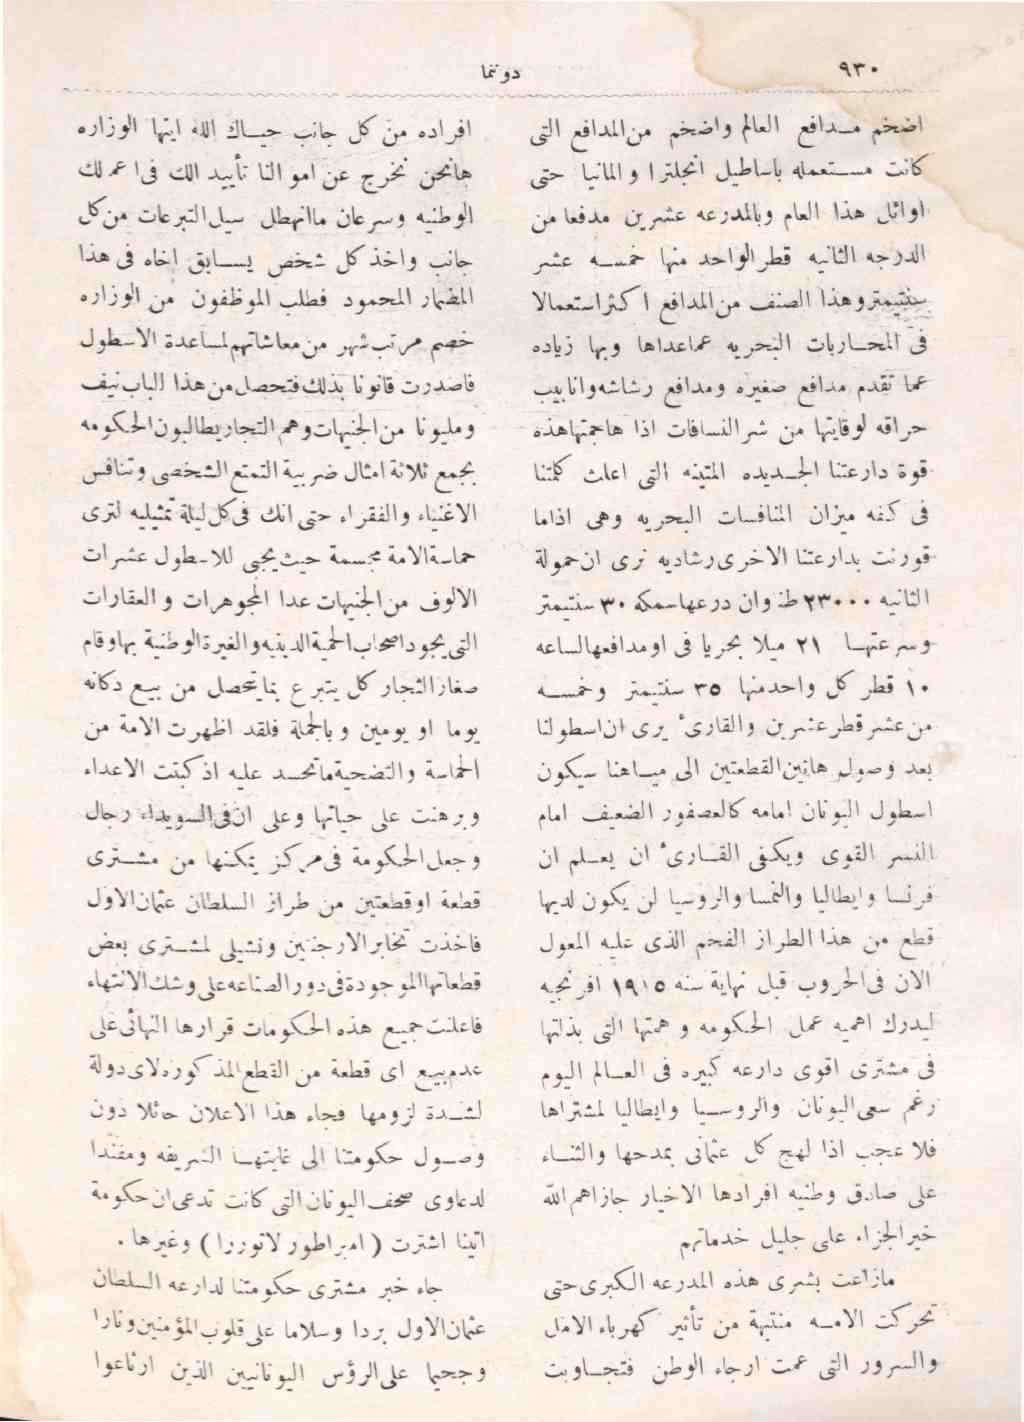 ٩٣٠
دوننما
اضخم مدافع العالم واضخم من المدافع التى
كانت مستعمله باساطيل انجلترا والمانيا حتى
اوائل هذا العام وبالمدرعه عشرين مدفعا من
الدرجه الثانيه قطر الواحد منها خمسه عشر
سنتيمتر وهذا الصنف من المدافع اكثر استعمالا
فى المحاربات البحريه عما عداها وبها زياده
عما تقدم مدافع صغيره ومدافع رشاشه وانابيب
حراقه لوقايتها من شر النسافات اذا هاجمتها هذه
قوة دارعتنا الجديده المتينه التى اعلت كلمتنا
فى كفه ميزان المنافسات البحريه وهى اذاما
قورنت بدارعتنا الاخرى رشاديه نرى ان حمولة
الثانيه ٢٣٠٠٠ طن وان درعها سمكه ٣٠ سنتيمتر
وسرعتها ٢١ ميلا بحريا فى او مدافعها الساعه
١٠ قطر كل واحد منها ٣٥ سنتيمتر وخمسه
من عشر قطر عشرين والقارئ يرى ان اسطولنا
بعد وصول هاتين القطعتين الى مياهنا سيكون
اسطول اليونان امامه كالعصفور الضعيف امام
النسر القوى ويكفى القارئ ان يعلم ان
فرنسا وايطاليا والنمسا والروسيا لن يكون لديها
قطع من هذا الطراز الفخم الذى عليه المعول
الان فى الحروب قبل نهاية سنه ١٩١٥ افرنجيه
ليدرك اهميه عمل الحكومه وهمتها التى بذلتها
فى مشترى اقوى دارعه كبيره فى العالم اليوم
رغم سعى اليونان والروسيا وايطاليا لمشتراها
فلا عجب اذا لهج كل عثمانى بمدحها والثناء
على صادق وطنيه افرادها الاخيار جازاهم الله
خير الجزاء على جليل خدماتهم
مازاعت بشرى هذه المدرعه الكبرى حتى
تحركت الامه منتبهة من تأثير كهرباء الامل
والسرور التى عمت ارجاء الوطن فتجاوبت
افراده من كل جانب حياك الله ايتها الوزاره
هانحن نخرج عن اموالنا تأييدا لك فى اعمالك
الوطنيه وسرعان ماانهطل سيل التبرعات من كل
جانب واخذ كل شخص يسابق اخاه فى هذا
المضمار المحمود فطلب الموظفون من الوزاره
خصم مرتب شهر من معاشاتهم لمساعدة الاسطول
فاصدرت قانونا بذلك فتحصل من هذا الباب نيف
ومليونا من الجنيهات وهم التجار يطالبون الحكومه
بجمع ثلاثة امثال ضريبة التمتع الشخصى وتنافس
الاغنياء والفقراء حتى انك فى كل ليلة تمثيليه لترى
حماسة الامة مجسمة حيث يجبى للاسطول عشرات
الالوف من الجنيهات عدا المجوهرات والعقارات
التى يجود اصحاب الحمية الدينيه والغيرة الوطنية بها وقام
صغار التجار كل يتبرع بما يتحصل من بيع دكانه
يوما او يومين وبالجملة فلقد اظهرت الامة من
الحماسة والتضحية ماتحسد عليه اذ كبتت الاعداء
وبرهنت على حياتها وعلى ان فى السويداء رجال
وجعل الحكومة فى مركز يمكنها من مشترى
قطعة او قطعتين من طراز السلطان عثمان الاول
فاخذت تخابر الارجنتين وتشيلى لمشترى بعض
قطعاتها الموجودة فى دور الصناعه على وشك الانتهاء
فاعلنت جميع هذه الحكومات قرارها النهائى على
عدم بيع اى قطعة من القطع المذكوره لاى دولة
لشدة لزومها فجاء هذا الاعلان حائلا دون
وصول حكومتنا الى غايتها الشريفه ومفندا
لدعاوى صحف اليونان التى كانت تدعى ان حكومة
اتينا اشترت ( امبراطور لاتوررا ) وغيرها .
جاء خبر مشترى حكومتنا لدارعه السلطان
عثمان الاول بردا وسلاما على قلوب المؤمنين ونارا
وجحيما على الرؤس اليونانيين الذين ارتاعوا